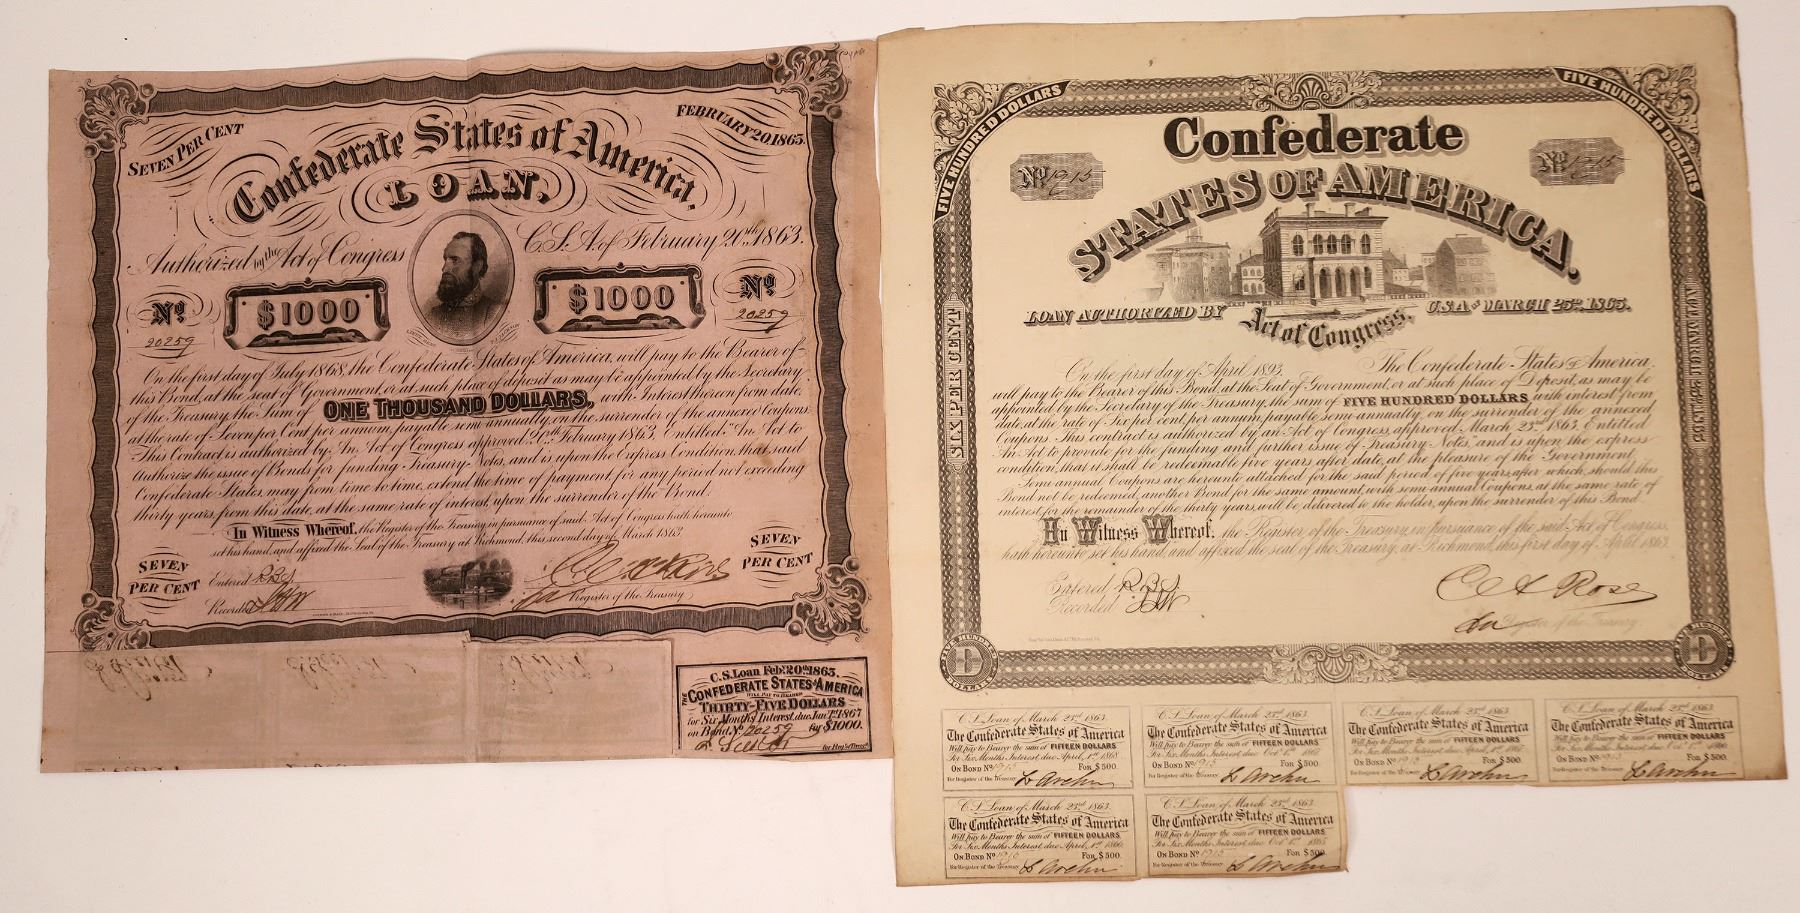 SEVEN PER CENT
FEBRUARY 20. 1863.
Confederate States of America.
LOAN,
Authorized by the Act of Congress
C.S.A. of February 20th 1863.
No
20259
$1000
$1000
No
20259
On the first day of July 1868, the Confederate States of America, will pay to the Bearer of
this Bond, at the seat of Government, or at such place of deposit as may be appointed by the Secretary
of the Treasury, the Sum of ONE THOUSAND DOLLARS, with Interest thereon from date,
at the rate of Seven per Cent per annum, payable semi annually, on the surrender of the annexed Coupons.
This Contract is authorized by An Act of Congress approved 20th February 1863. Entitled "An Act to
authorize the issue of Bonds for funding Treasury Notes, and is upon the Express Condition, that said
Confederate States, may from time to time, extend the time of payment, for any period not exceeding
thirty years, from this date, at the same rate of interest, upon the surrender of the Bond.
In Witness Whereof, the Register of the Treasury in pursuance of said Act of Congress hath hereunto
set his hand, and affixed the Seal of the Treasury at Richmond, this second day of March 1863
SEVEN PER CENT
SEVEN PER CENT
Entered
Recorded
Register of the Treasury
C.S. Loan Feb. 20th 1863.
THE CONFEDERATE STATES OF AMERICA
WILL PAY TO BEARER
THIRTY-FIVE DOLLARS
for Six Months Interest, due Jan. 1st 1867
on Bond No 20259 for $1000.
for Reg. of Treasy.
FIVE HUNDRED DOLLARS
FIVE HUNDRED DOLLARS
Confederate
STATES OF AMERICA.
No 1915
No 1915
LOAN AUTHORIZED BY
Act of Congress.
C.S.A. OF MARCH 23RD 1863.
SIX PER CENT
On the first day of April 1893, The Confederate States of America,
will pay to the Bearer of this Bond, at the Seat of Government, or at such place of Deposit, as may be
appointed by the Secretary of the Treasury, the sum of FIVE HUNDRED DOLLARS, with interest from
date, at the rate of Six per cent, per annum, payable semi annually, on the surrender of the annexed
Coupons. This contract is authorized by an Act of Congress, approved March 23rd 1863. Entitled
An Act to provide for the funding and further issue of Treasury Notes, and is upon the express
condition, that it shall be redeemable five years after date, at the pleasure of the Government.
Semi annual Coupons are hereunto attached for the said period of five years, after which, should this
Bond not be redeemed, another Bond for the same amount, with semi annual Coupons, at the same rate of
interest, for the remainder of the thirty years, will be delivered to the holder, upon the surrender of this Bond.
In Witness Whereof, the Register of the Treasury, in pursuance of the said Act of Congress,
hath hereunto set his hand, and affixed the seal of the Treasury, at Richmond, this first day of April 1863.
Entered
Recorded
C A Rose
Register of the Treasury.
FIVE HUNDRED
D
DOLLARS
FIVE HUNDRED
D
DOLLARS
C.S. Loan of March 23rd 1863.
The Confederate States of America
Will pay to Bearer the sum of FIFTEEN DOLLARS
For Six Months Interest, due April, 1st 1868
ON BOND No 1915 FOR $500.
For Register of the Treasury
C.S. Loan of March 23rd 1863.
The Confederate States of America
Will pay to Bearer the sum of FIFTEEN DOLLARS
For Six Months Interest, due Oct. 1st 1867
ON BOND No 1915 FOR $500.
For Register of the Treasury
C.S. Loan of March 23rd 1863.
The Confederate States of America
Will pay to Bearer the sum of FIFTEEN DOLLARS
For Six Months Interest, due April, 1st 1867
ON BOND No 1915 FOR $500.
For Register of the Treasury
C.S. Loan of March 23rd 1863.
The Confederate States of America
Will pay to Bearer the sum of FIFTEEN DOLLARS
For Six Months Interest, due Oct. 1st 1866
ON BOND No 1915 FOR $500.
For Register of the Treasury
C.S. Loan of March 23rd 1863.
The Confederate States of America
Will pay to Bearer the sum of FIFTEEN DOLLARS
For Six Months Interest, due April, 1st 1866
ON BOND No 1915 FOR $500.
For Register of the Treasury
C.S. Loan of March 23rd 1863.
The Confederate States of America
Will pay to Bearer the sum of FIFTEEN DOLLARS
For Six Months Interest, due Oct. 1st 1865
ON BOND No 1915 FOR $500.
For Register of the Treasury